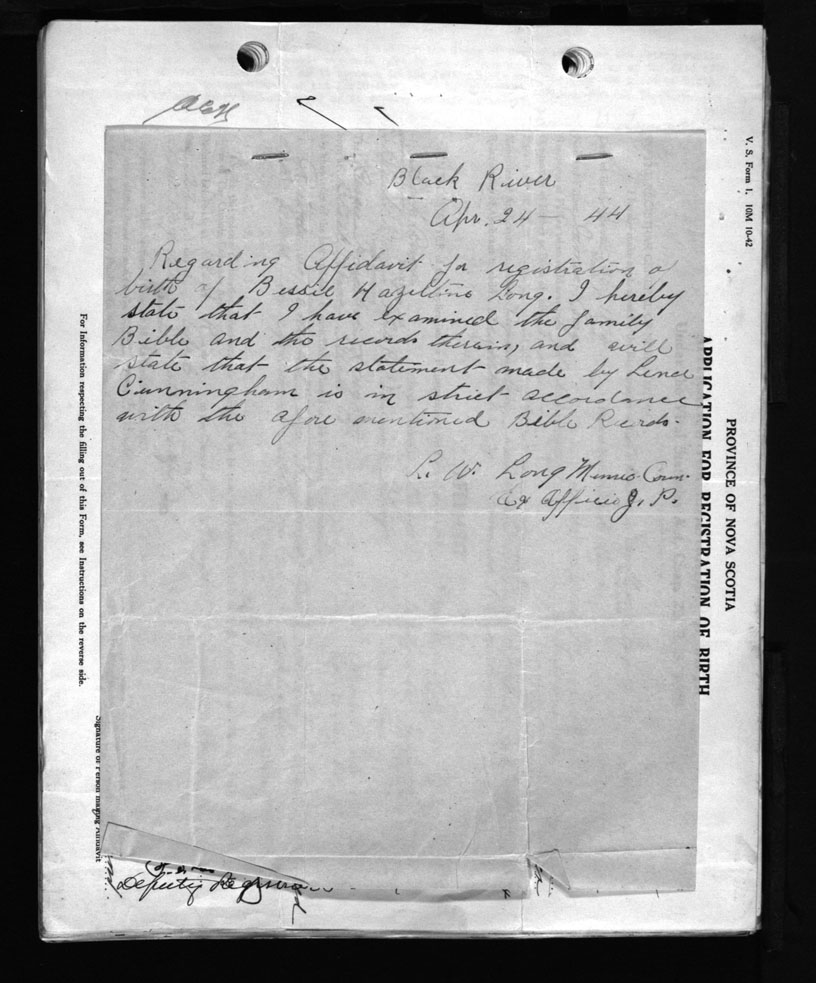 Black River
Apr. 24 - 44
Regarding Affidavit for registration of
birth of Bessie Hazeltine Long. I hereby
state that I have examined the family
Bible and the records therein, and will
state that the statement made by Lena
Cunningham is in strict accordance
with the afore mentioned Bible Records.
L. W. Long Munic. Coun.
Ex Officio J. P.
Deputy Registrar
For Information respecting the filling out of this Form, see Instructions on the reverse side.
Signature of Person making Affidavit
V. S. Form 1. 10M 10-42
PROVINCE OF NOVA SCOTIA
APPLICATION FOR REGISTRATION OF BIRTH